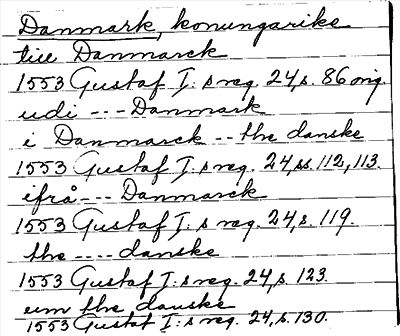 Danmark, konungarike
till Danmarck
1553 Gustaf I:s reg. 24, s. 86 orig.
udi --- Danmark
i Danmarck -- the danske
1553 Gustaf I:s reg. 24, ss. 112, 113.
ifrå --- Danmarck
1553 Gustaf I:s reg. 24, s. 119.
the ---- danske
1553 Gustaf I:s reg. 24, s. 123.
um the danske
1553 Gustaf I:s reg. 24, s. 130.